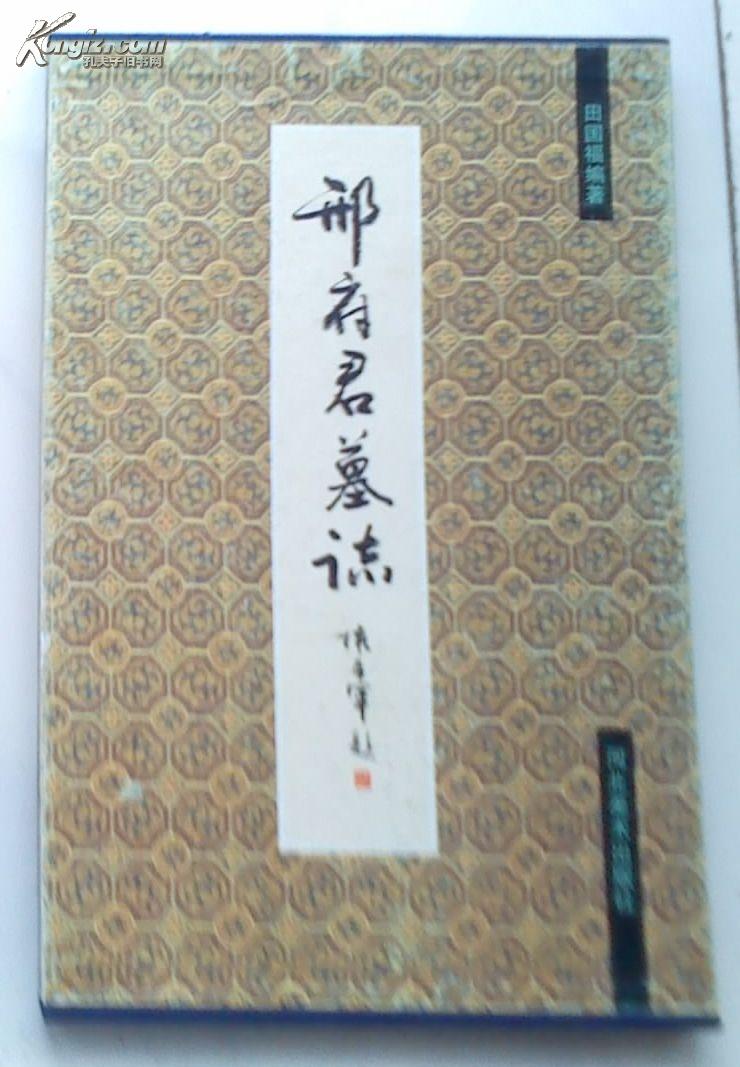 Kongfz.com
孔夫子旧书网
田国福编著
邢府君墓誌
美术出版社